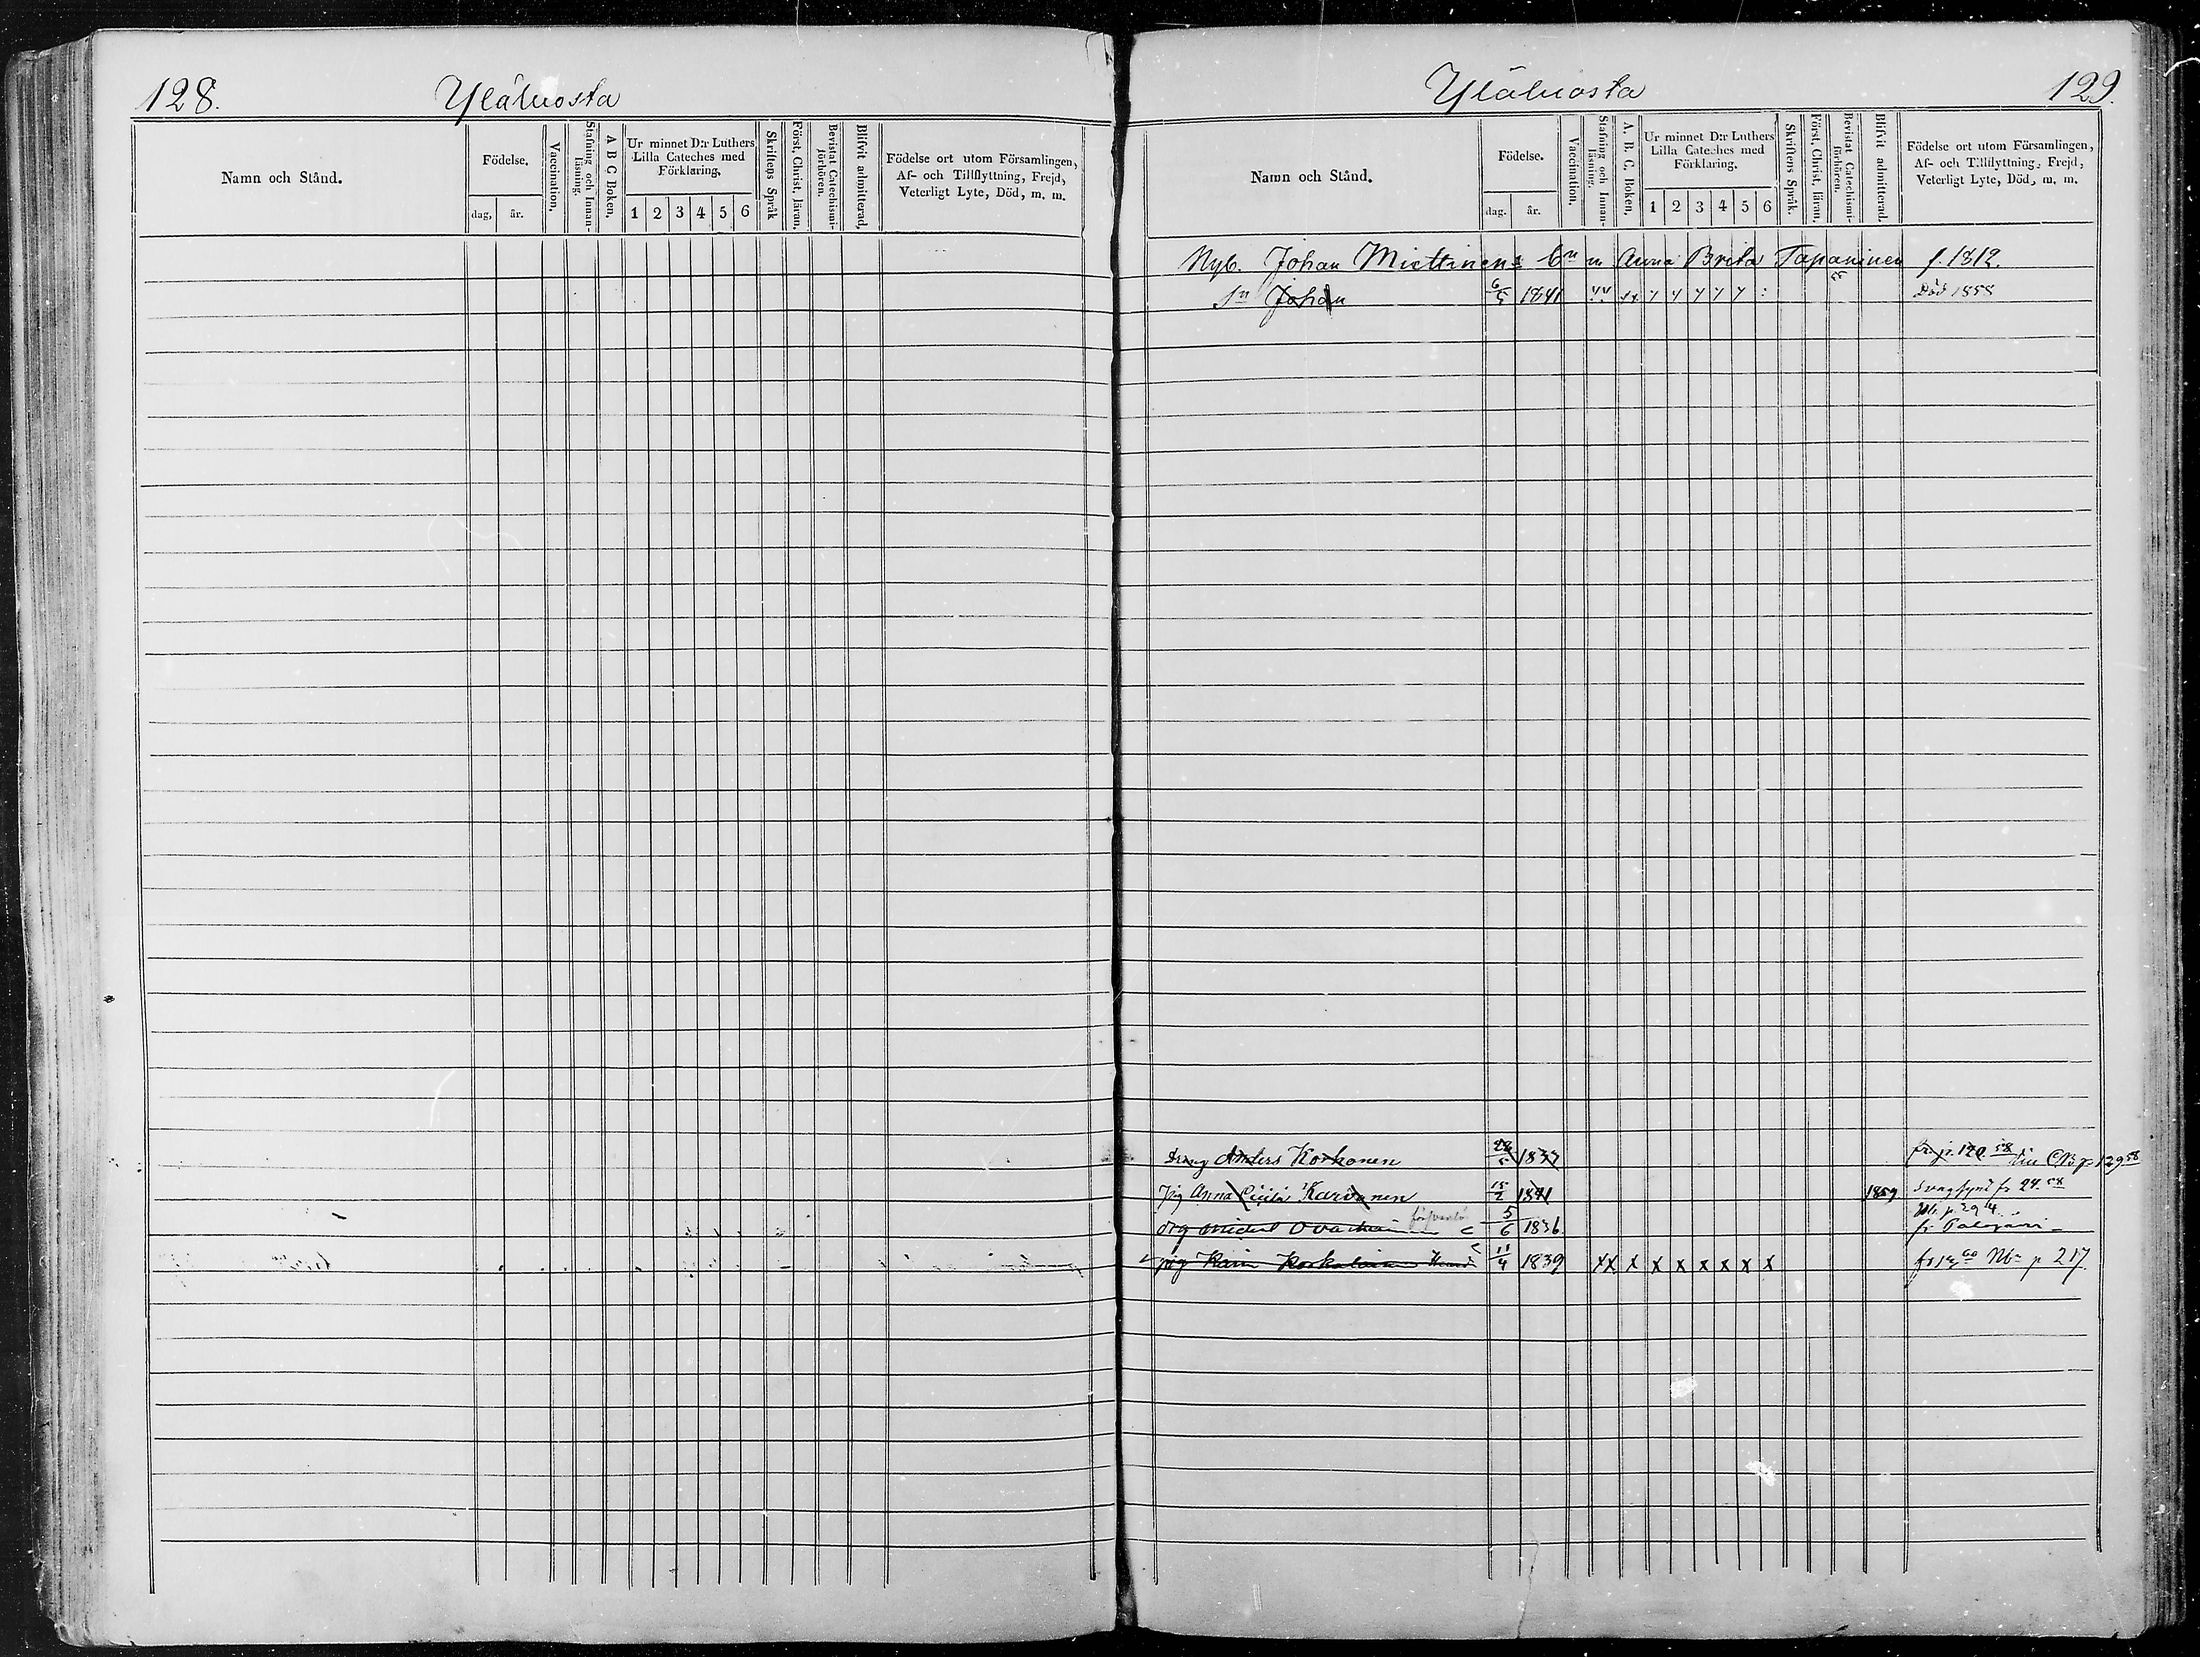 128.
Yläluosta
Namn och Stånd.
Födelse.
dag, år.
Vaccination.
Stafning och Innan-läsning.
A B C Boken.
Ur minnet D:r Luthers
Lilla Cateches med
Förklaring.
1 2 3 4 5 6
Skriftens Språk
Först. Christ. läran.
Bevistat Catechismi-förhören.
Blifvit admitterad.
Födelse ort utom Församlingen,
Af- och Tillflyttning, Frejd,
Veterligt Lyte, Död, m. m.
Yläluosta
129.
Namn och Stånd.
Födelse.
dag. år.
Vaccination.
Stafning och Innan-läsning.
A. B. C. Boken.
Ur minnet D:r Luthers
Lilla Cateches med
Förklaring.
1 2 3 4 5 6
Skriftens Språk.
Först. Christ. läran.
Bevistat Catechismi-förhören.
Blifvit admitterad.
Födelse ort utom Församlingen,
Af- och Tillflyttning, Frejd,
Veterligt Lyte, Död, m. m.
Nyb. Johan Miettinens Enn Anna Brita Tapaninen f. 1812.
Sn Johan 6/5 1841 Död 1858
Dreng Anders Korhonen 28/5 1837 fr. p. 120 58 till CB p 129 58
Pig Anna Cicilia Karvonen 15/2 1841 1859 Svagsynt fr 24 58
Drg Michel Ovaskainen 5/6 1836 fr Palojärvi
pig Karin Koskelainen 11/4 1839 x x x x x x x x x p 217